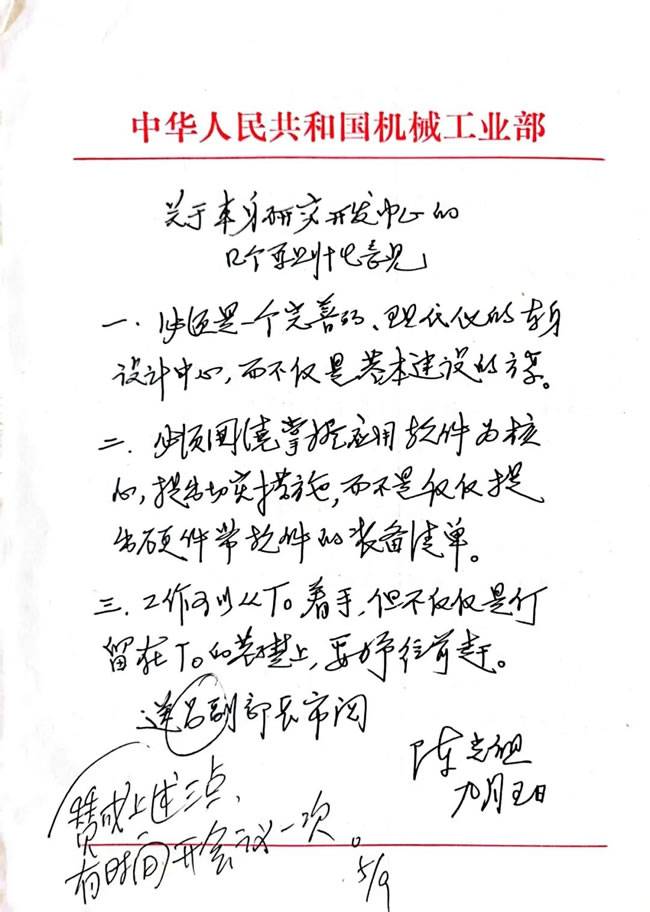 中华人民共和国机械工业部
关于车身研究开发中心的
几个原则性意见
一．必须是一个完善的、现代化的车身
设计中心，而不仅是基本建设的方案。
二．必须围绕掌握应用软件为核
心，提出切实措施，而不是仅仅提
出硬件带软件的装备清单。
三．工作可以从T0着手，但不仅仅是停
留在T0的基础上，要往前走。
送吕副部长审阅
陈
九月五日
赞成上述三点，
有时间开会议一次。
5/9